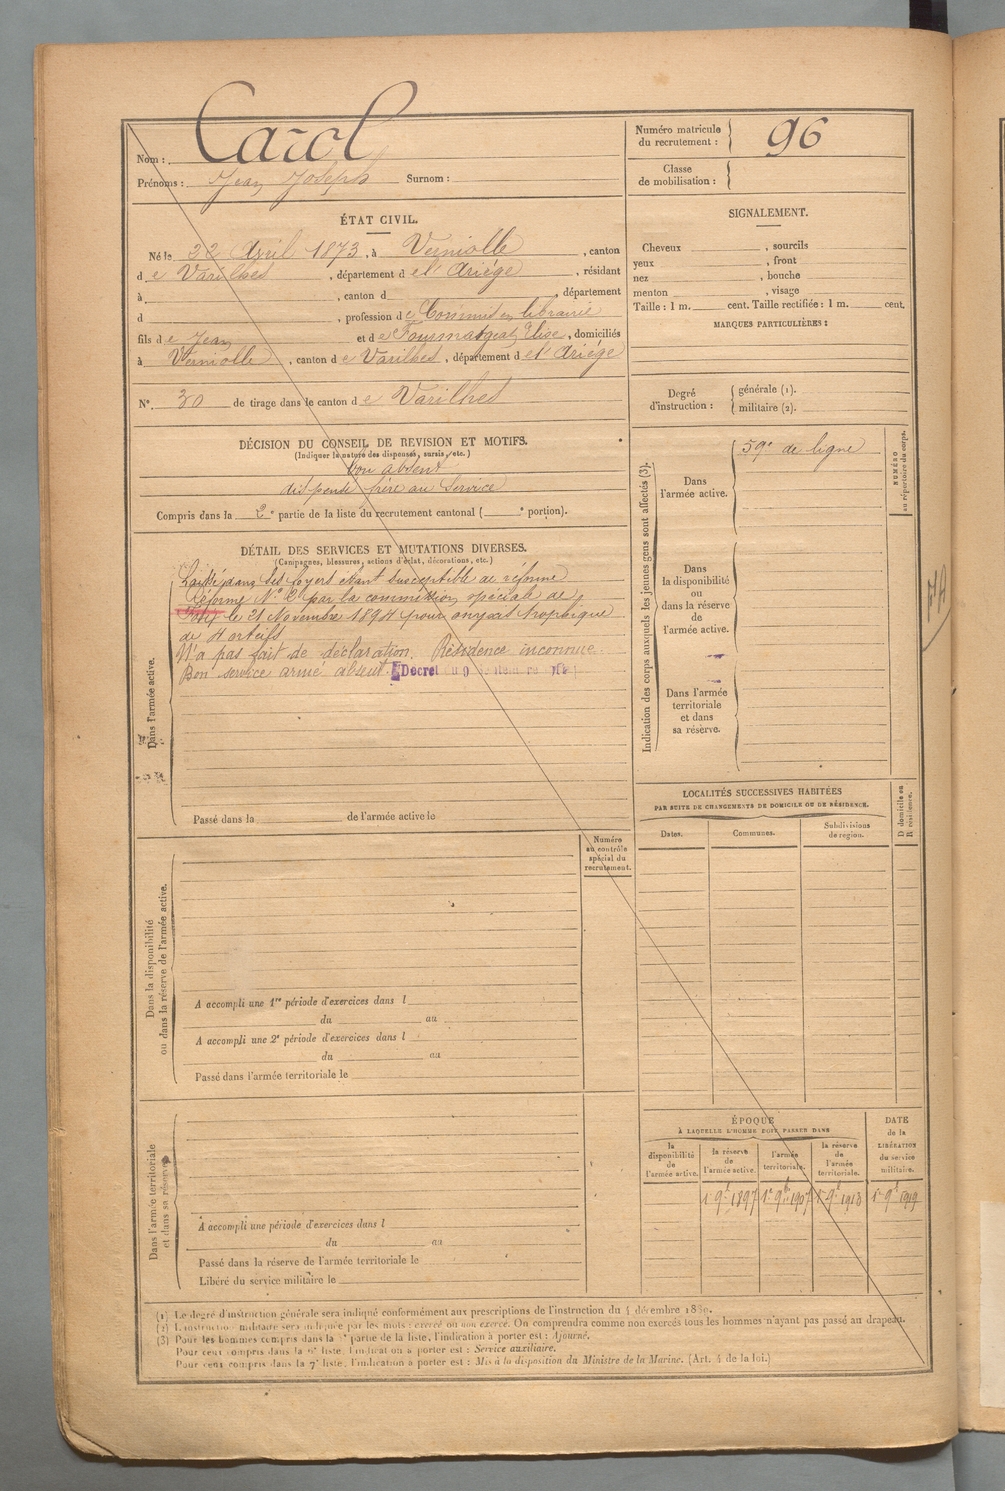 Nom : Carol
Prénoms : Jean Joseph Surnom :
Numéro matricule du recrutement : 96
Classe de mobilisation :
ÉTAT CIVIL.
Né le 22 Avril 1873, à Verniolle, canton
de Varilhes, département de l'Ariège, résidant
à , canton d , département
d , profession de Commis en librairie
fils de Jean et de Fourmatgeat Elise, domiciliés
à Verniolle, canton de Varilhes, département de l'Ariège
N° 30 de tirage dans le canton de Varilhes
DÉCISION DU CONSEIL DE REVISION ET MOTIFS.
(Indiquer la nature des dispenses, sursis, etc.)
bon absent
dispensé frère au service
Compris dans la 2e partie de la liste du recrutement cantonal ( e portion).
DÉTAIL DES SERVICES ET MUTATIONS DIVERSES.
(Campagnes, blessures, actions d'éclat, décorations, etc.)
Dans l'armée active.
Laissé dans ses foyers étant susceptible de réforme
Réformé N° 2 par la commission spéciale de
le 21 Novembre 1894 pour
de orteils
N'a pas fait de déclaration. Résidence inconnue.
Bon service armé absent. Décret du 9
Passé dans la de l'armée active le
Numéro au contrôle spécial du recrutement.
Dans la disponibilité ou dans la réserve de l'armée active.
A accompli une 1re période d'exercices dans l
du au
A accompli une 2e période d'exercices dans l
du au
Passé dans l'armée territoriale le
Dans l'armée territoriale et dans sa réserve.
A accompli une période d'exercices dans l
du au
Passé dans la réserve de l'armée territoriale le
Libéré du service militaire le
SIGNALEMENT.
Cheveux , sourcils
yeux , front
nez , bouche
menton , visage
Taille : 1 m. cent. Taille rectifiée : 1 m. cent.
MARQUES PARTICULIÈRES :
Degré d'instruction : générale (1).
militaire (2).
Indication des corps auxquels les jeunes gens sont affectés (3).
NUMÉRO au répertoire du corps.
Dans l'armée active.
59e de ligne
Dans la disponibilité ou dans la réserve de l'armée active.
Dans l'armée territoriale et dans sa réserve.
LOCALITÉS SUCCESSIVES HABITÉES
PAR SUITE DE CHANGEMENTS DE DOMICILE OU DE RÉSIDENCE.
Dates. Communes. Subdivisions de region. D domicile ou R résidence.
ÉPOQUE
À LAQUELLE L'HOMME DOIT PASSER DANS
la disponibilité de l'armée active.
la réserve de l'armée active.
l'armée territoriale.
la réserve de l'armée territoriale.
DATE de la LIBÉRATION du service militaire.
1r 9b 1897 1r 9b 1907 1r 9b 1913 1r 9b 1919
(1) Le degré d'instruction générale sera indiqué conformément aux prescriptions de l'instruction du 4 décembre 1889.
(2) L'instruction militaire sera indiquée par les mots : exercé ou non exercé. On comprendra comme non exercés tous les hommes n'ayant pas passé au drapeau.
(3) Pour les hommes compris dans la partie de la liste, l'indication à porter est : Ajourné.
Pour ceux compris dans la liste, l'indication à porter est : Service auxiliaire.
Pour ceux compris dans la 7e liste, l'indication à porter est : Mis à la disposition du Ministre de la Marine. (Art. 4 de la loi.)